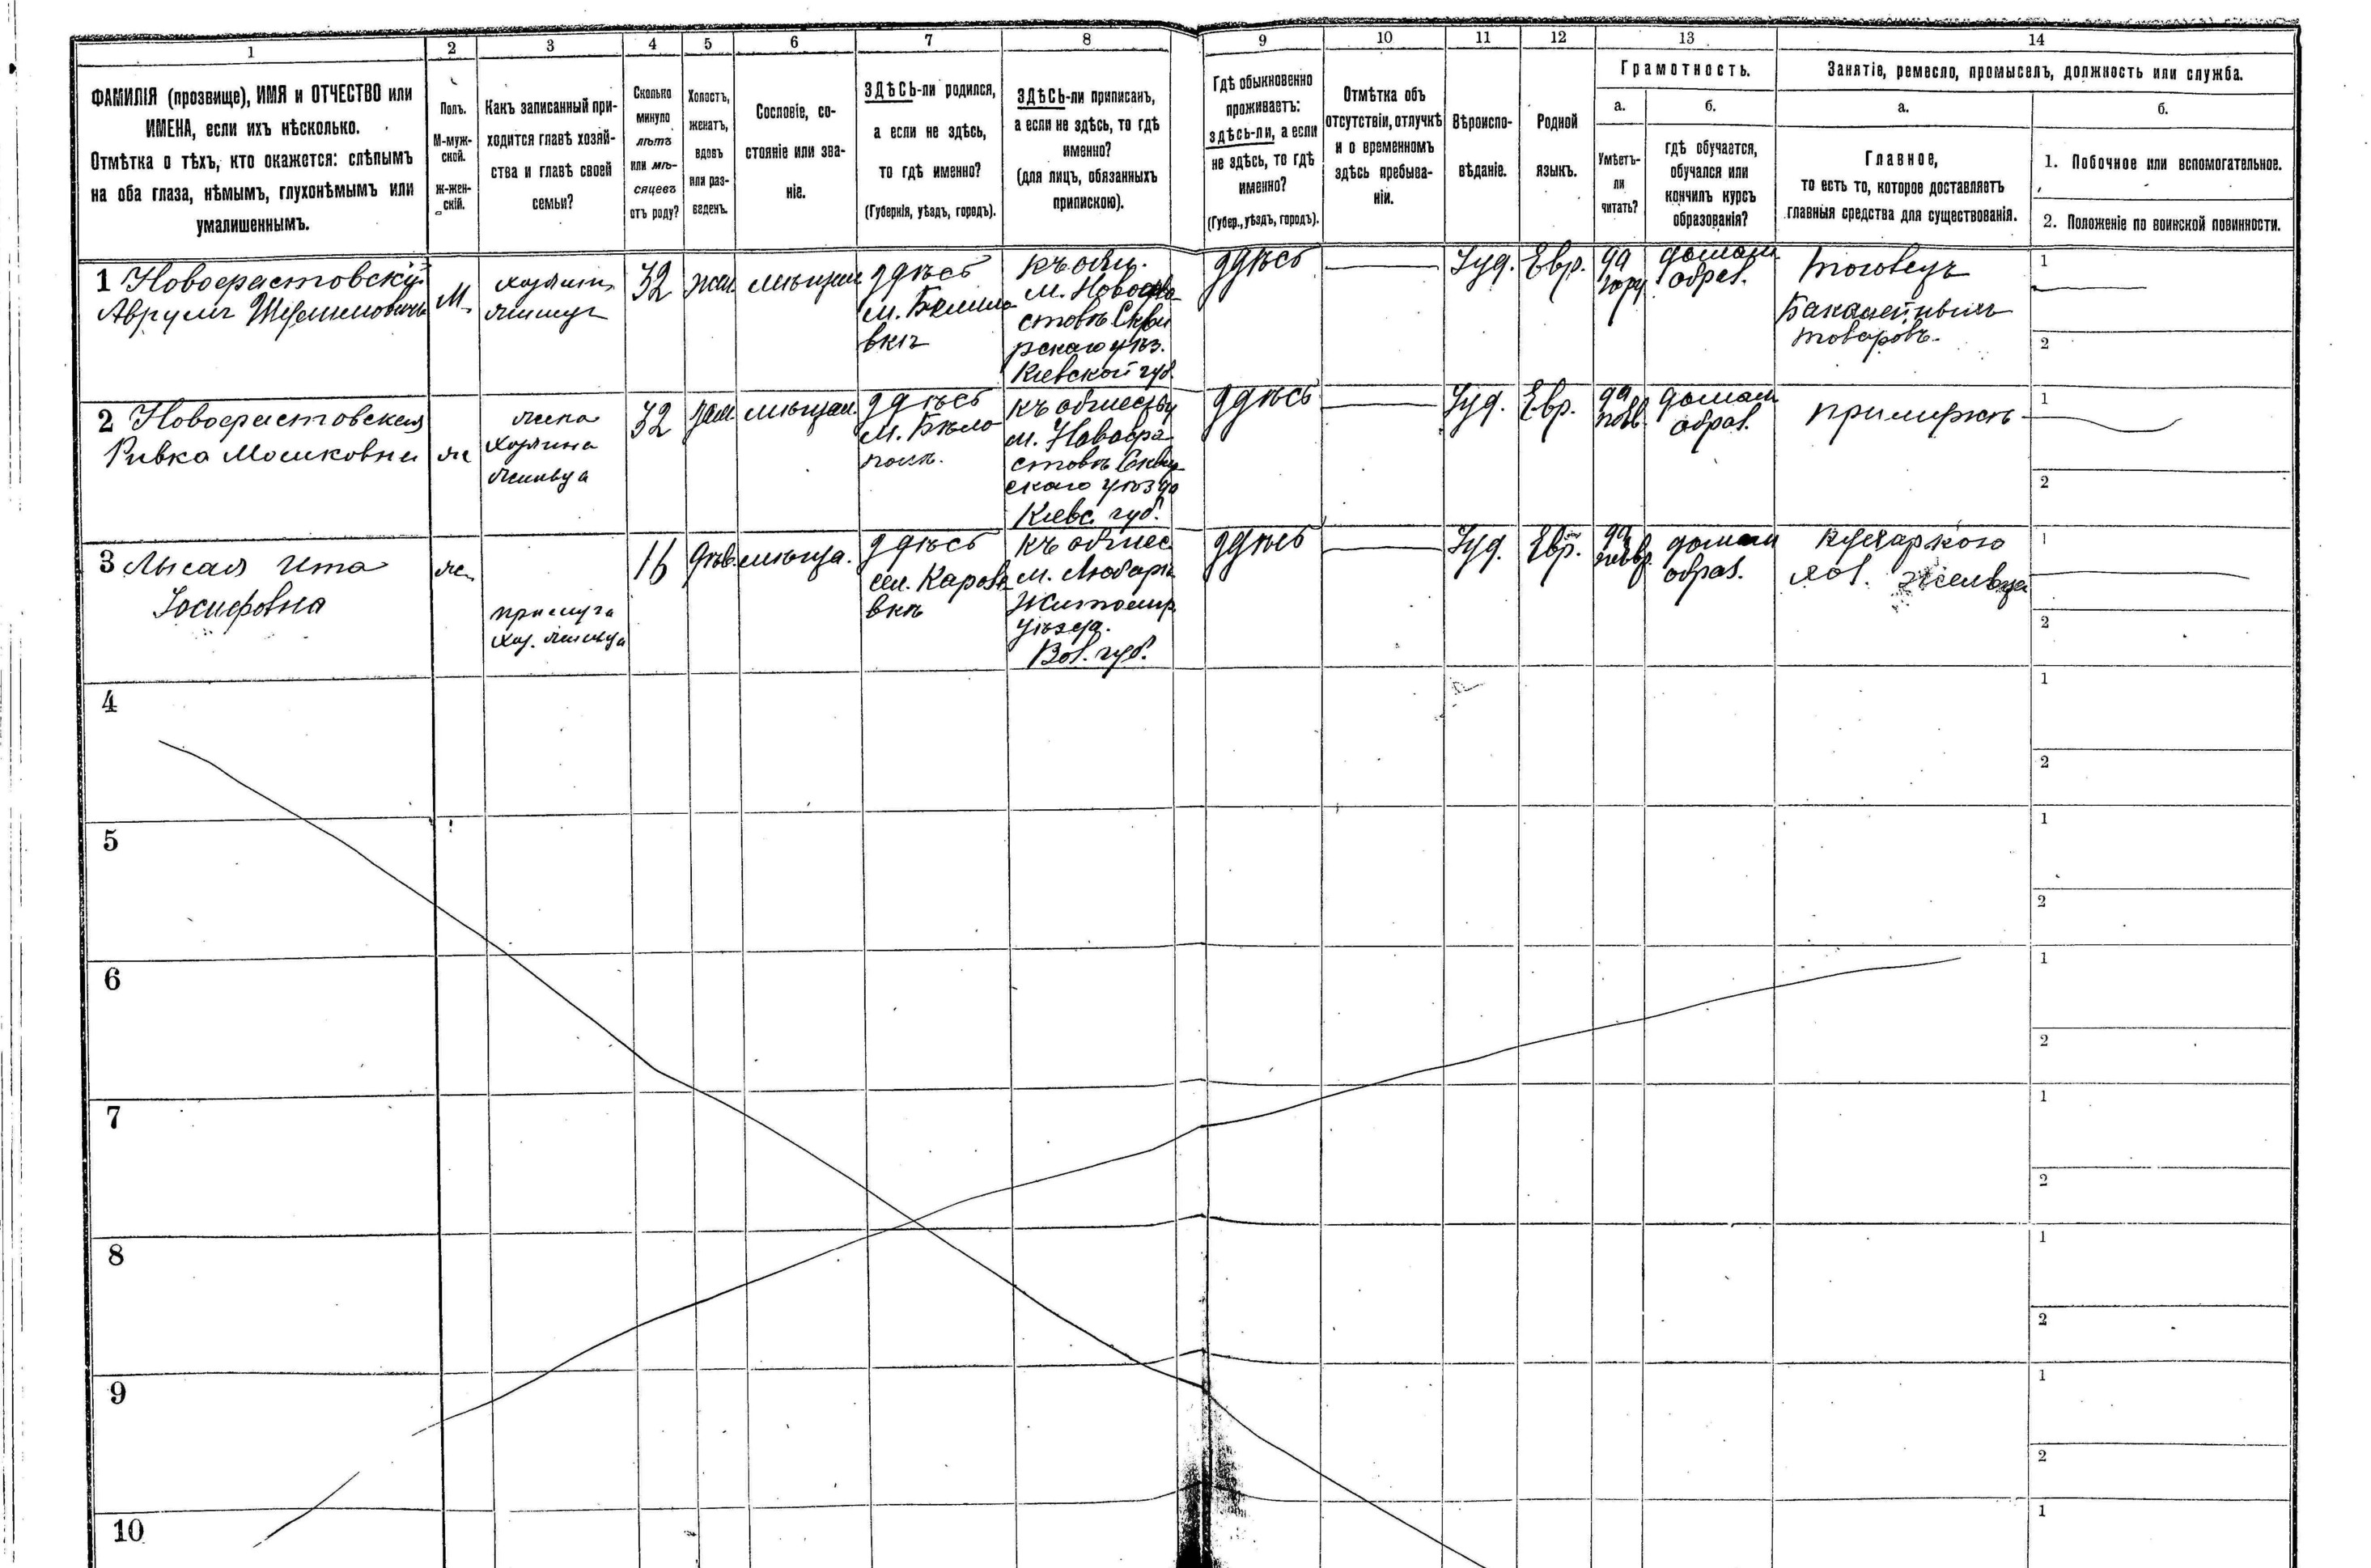 1 2 3 4 5 6 7 8 9 10 11 12 13 14
ФАМИЛІЯ (прозвище), ИМЯ и ОТЧЕСТВО или
ИМЕНА, если ихъ нѣсколько.
Отмѣтка о тѣхъ, кто окажется: слѣпымъ
на оба глаза, нѣмымъ, глухонѣмымъ или
умалишеннымъ.
Полъ.
М-муж-
ской.
ж-жен-
скій.
Какъ записанный при-
ходится главѣ хозяй-
ства и главѣ своей
семьи?
Сколько
минуло
лѣтъ
или мѣ-
сяцевъ
отъ роду?
Холостъ,
женатъ,
вдовъ
или раз-
веденъ.
Сословіе, со-
стояніе или зва-
ніе.
ЗДѢСЬ-ли родился,
а если не здѣсь,
то гдѣ именно?
(Губернія, уѣздъ, городъ).
ЗДѢСЬ-ли приписанъ,
а если не здѣсь, то гдѣ
именно?
(для лицъ, обязанныхъ
припискою).
Гдѣ обыкновенно
проживаетъ:
здѣсь-ли, а если
не здѣсь, то гдѣ
именно?
(Губер., уѣздъ, городъ).
Отмѣтка объ
отсутствіи, отлучкѣ
и о временномъ
здѣсь пребыва-
ніи.
Вѣроиспо-
вѣданіе.
Родной
языкъ.
Грамотность.
а.
Умѣетъ-
ли
читать?
б.
гдѣ обучается,
обучался или
кончилъ курсъ
образованія?
Занятіе, ремесло, промыселъ, должность или служба.
а.
Главное,
то есть то, которое доставляетъ
главныя средства для существованія.
б.
1. Побочное или вспомогательное.
2. Положеніе по воинской повинности.
1 Новофастовскій
Аврумъ
М.
32
жен.
мѣщан.
здѣсь
м.
вкѣ
къ общ.
м. Новофа
стовѣ Скви
рскаго уѣз.
Кіевской губ.
здѣсь
Іуд.
Евр.
да
домаш.
образ.
Бакалейныхъ
товаровъ.
1
2
2 Новофастовская
Ривка Мошковна
ж
жена
хозяина
32
зам.
мѣщан.
здѣсь
м. Бѣло
полѣ.
къ обществу
м. Новофа
стовѣ Скви
скаго уѣзда
Кіевс. губ.
здѣсь
Іуд.
Евр.
да
домаш
образ.
при мужѣ
1
2
3 Лысая Ита
Іосифовна
ж.
прислуга
хоз.
16
дѣв.
мѣща.
здѣсь
сел.
вкѣ
къ общес
м. Любарѣ
Житомир.
уѣзда.
Вол. губ.
здѣсь
Іуд.
Евр.
да
домаш
образ.
кухаркою
1
2
4
1
2
5
1
2
6
1
2
7
1
2
8
1
2
9
1
2
10
1